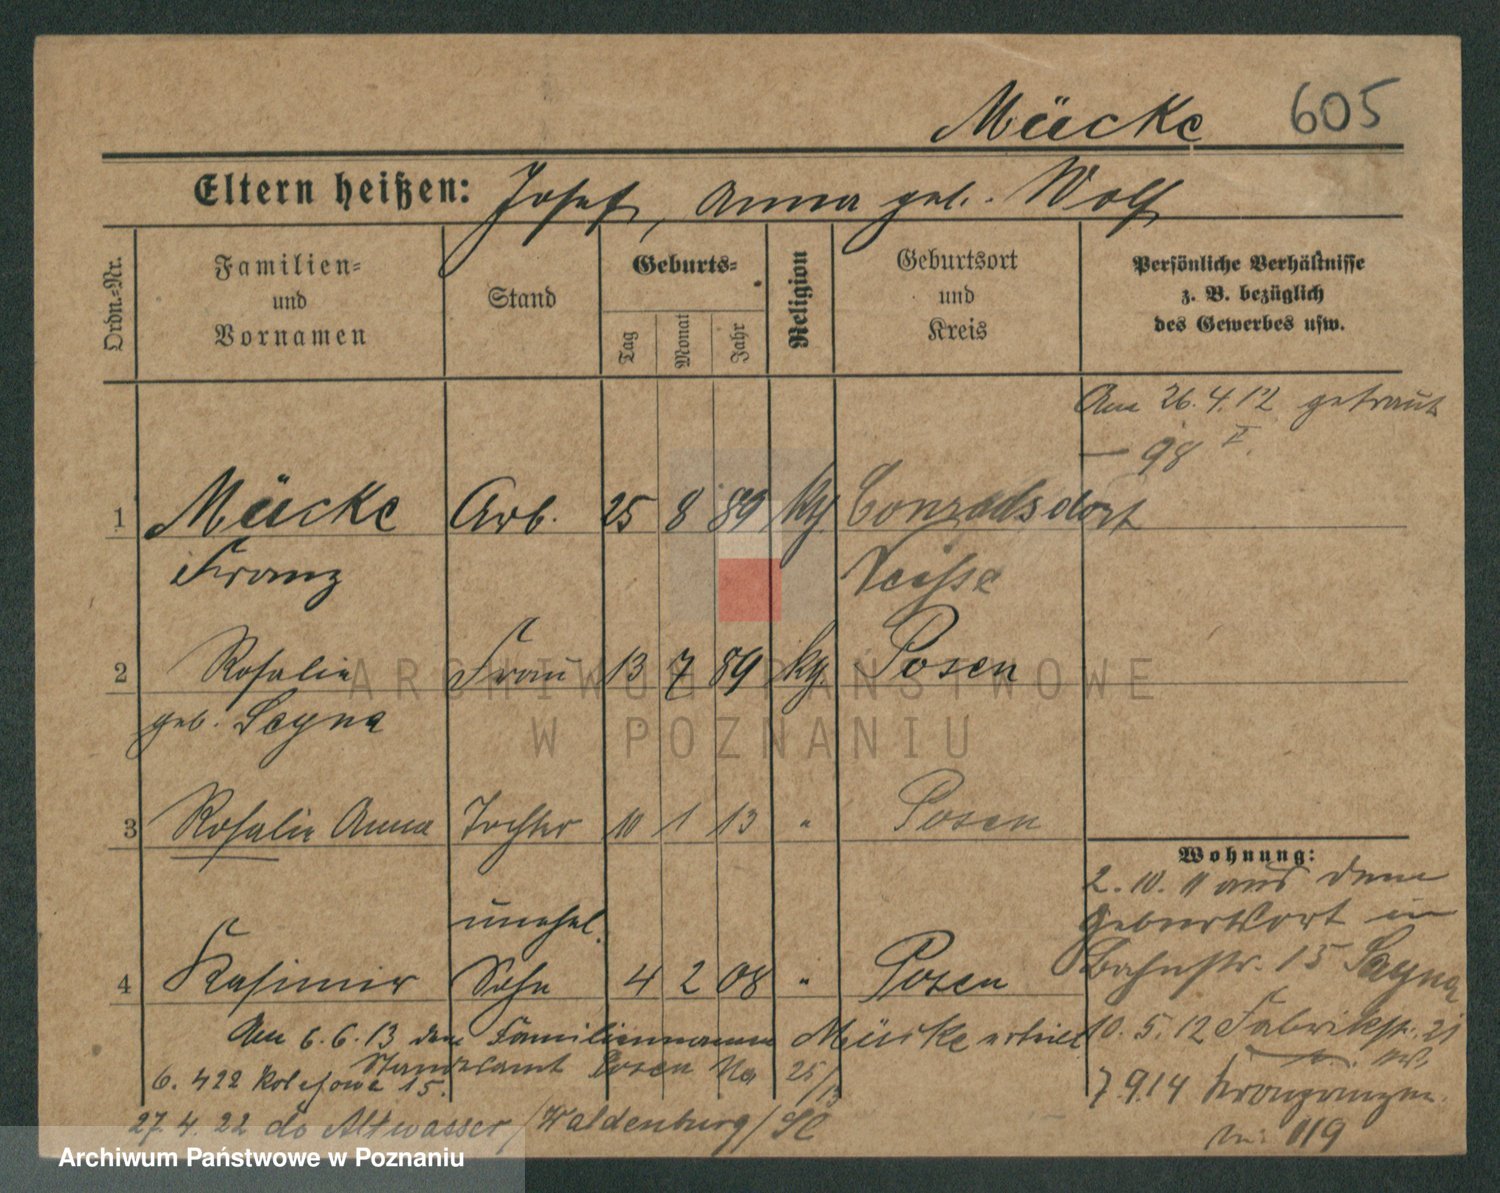 Mücke 605
Eltern heißen: Josef, Anna geb. Wolf
Ordn.-Nr.
Familien-
und
Vornamen
Stand
Geburts-
Tag
Monat
Jahr
Religion
Geburtsort
und
Kreis
Persönliche Verhältnisse
z. B. bezüglich
des Gewerbes usw.
Am 26.4.12 getraut
— 98 I.
1 Mücke Arb. 25 8 89 kg. Conradsdorf
Franz Neisse
2 Rosalie Frau 13 7 89 kg. Posen
geb. Sayna
3 Rosalie Anna Tochter 10 1 13 " Posen
Wohnung:
2.10.11 aus dem
Geburtsort in
Bahnstr. 15 Sayna
unehel.
4 Kasimir Sohn 4 2 08 " Posen
Am 6.6.13 den Familiennamen Mücke erhielt
10.5.12 Fabrikstr. 21
Standesamt Posen No 25/13
6.422 Kolejowa 15.
7.9.14 Kronprinzen
119
27.4.22 do Altwasser/Waldenburg/Sl
ARCHIWUM PAŃSTWOWE
W POZNANIU
Archiwum Państwowe w Poznaniu